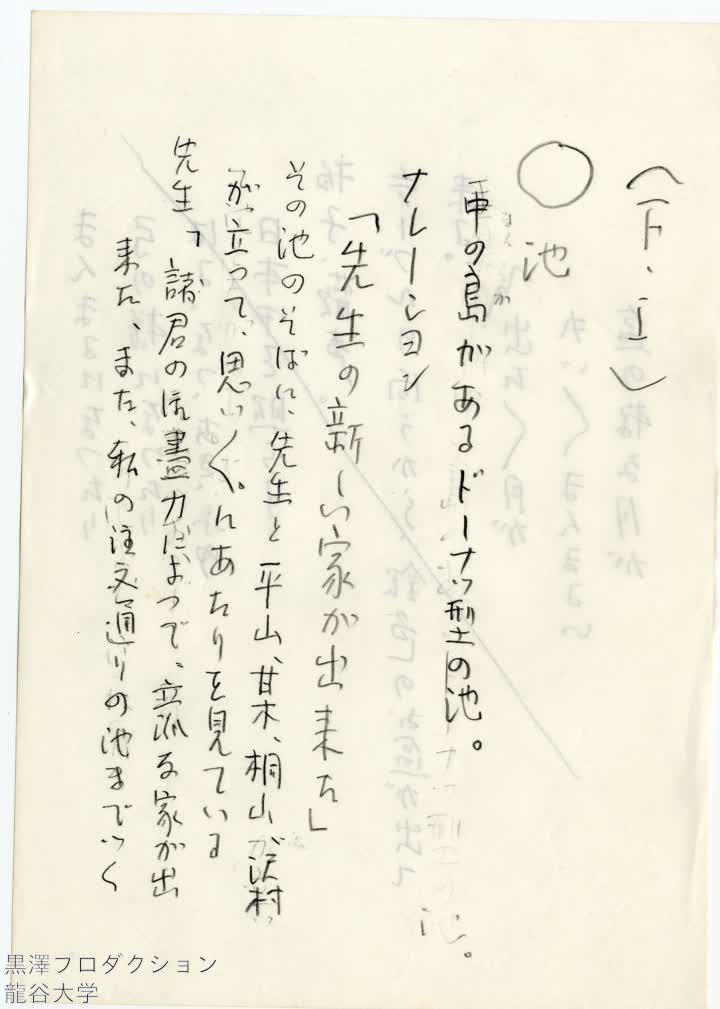 （F・I）
○ 池
中の島があるドーナッツ型の池。
ナレーション
「先生の新しい家が出来た」
その池のそばに、先生と平山、甘木、桐山、沢村
が立って、思い〱にあたりを見ている
先生「諸君の尽力によって、立派な家が出
来た、また、私の注文通りの池までつく
黒澤プロダクション
龍谷大学